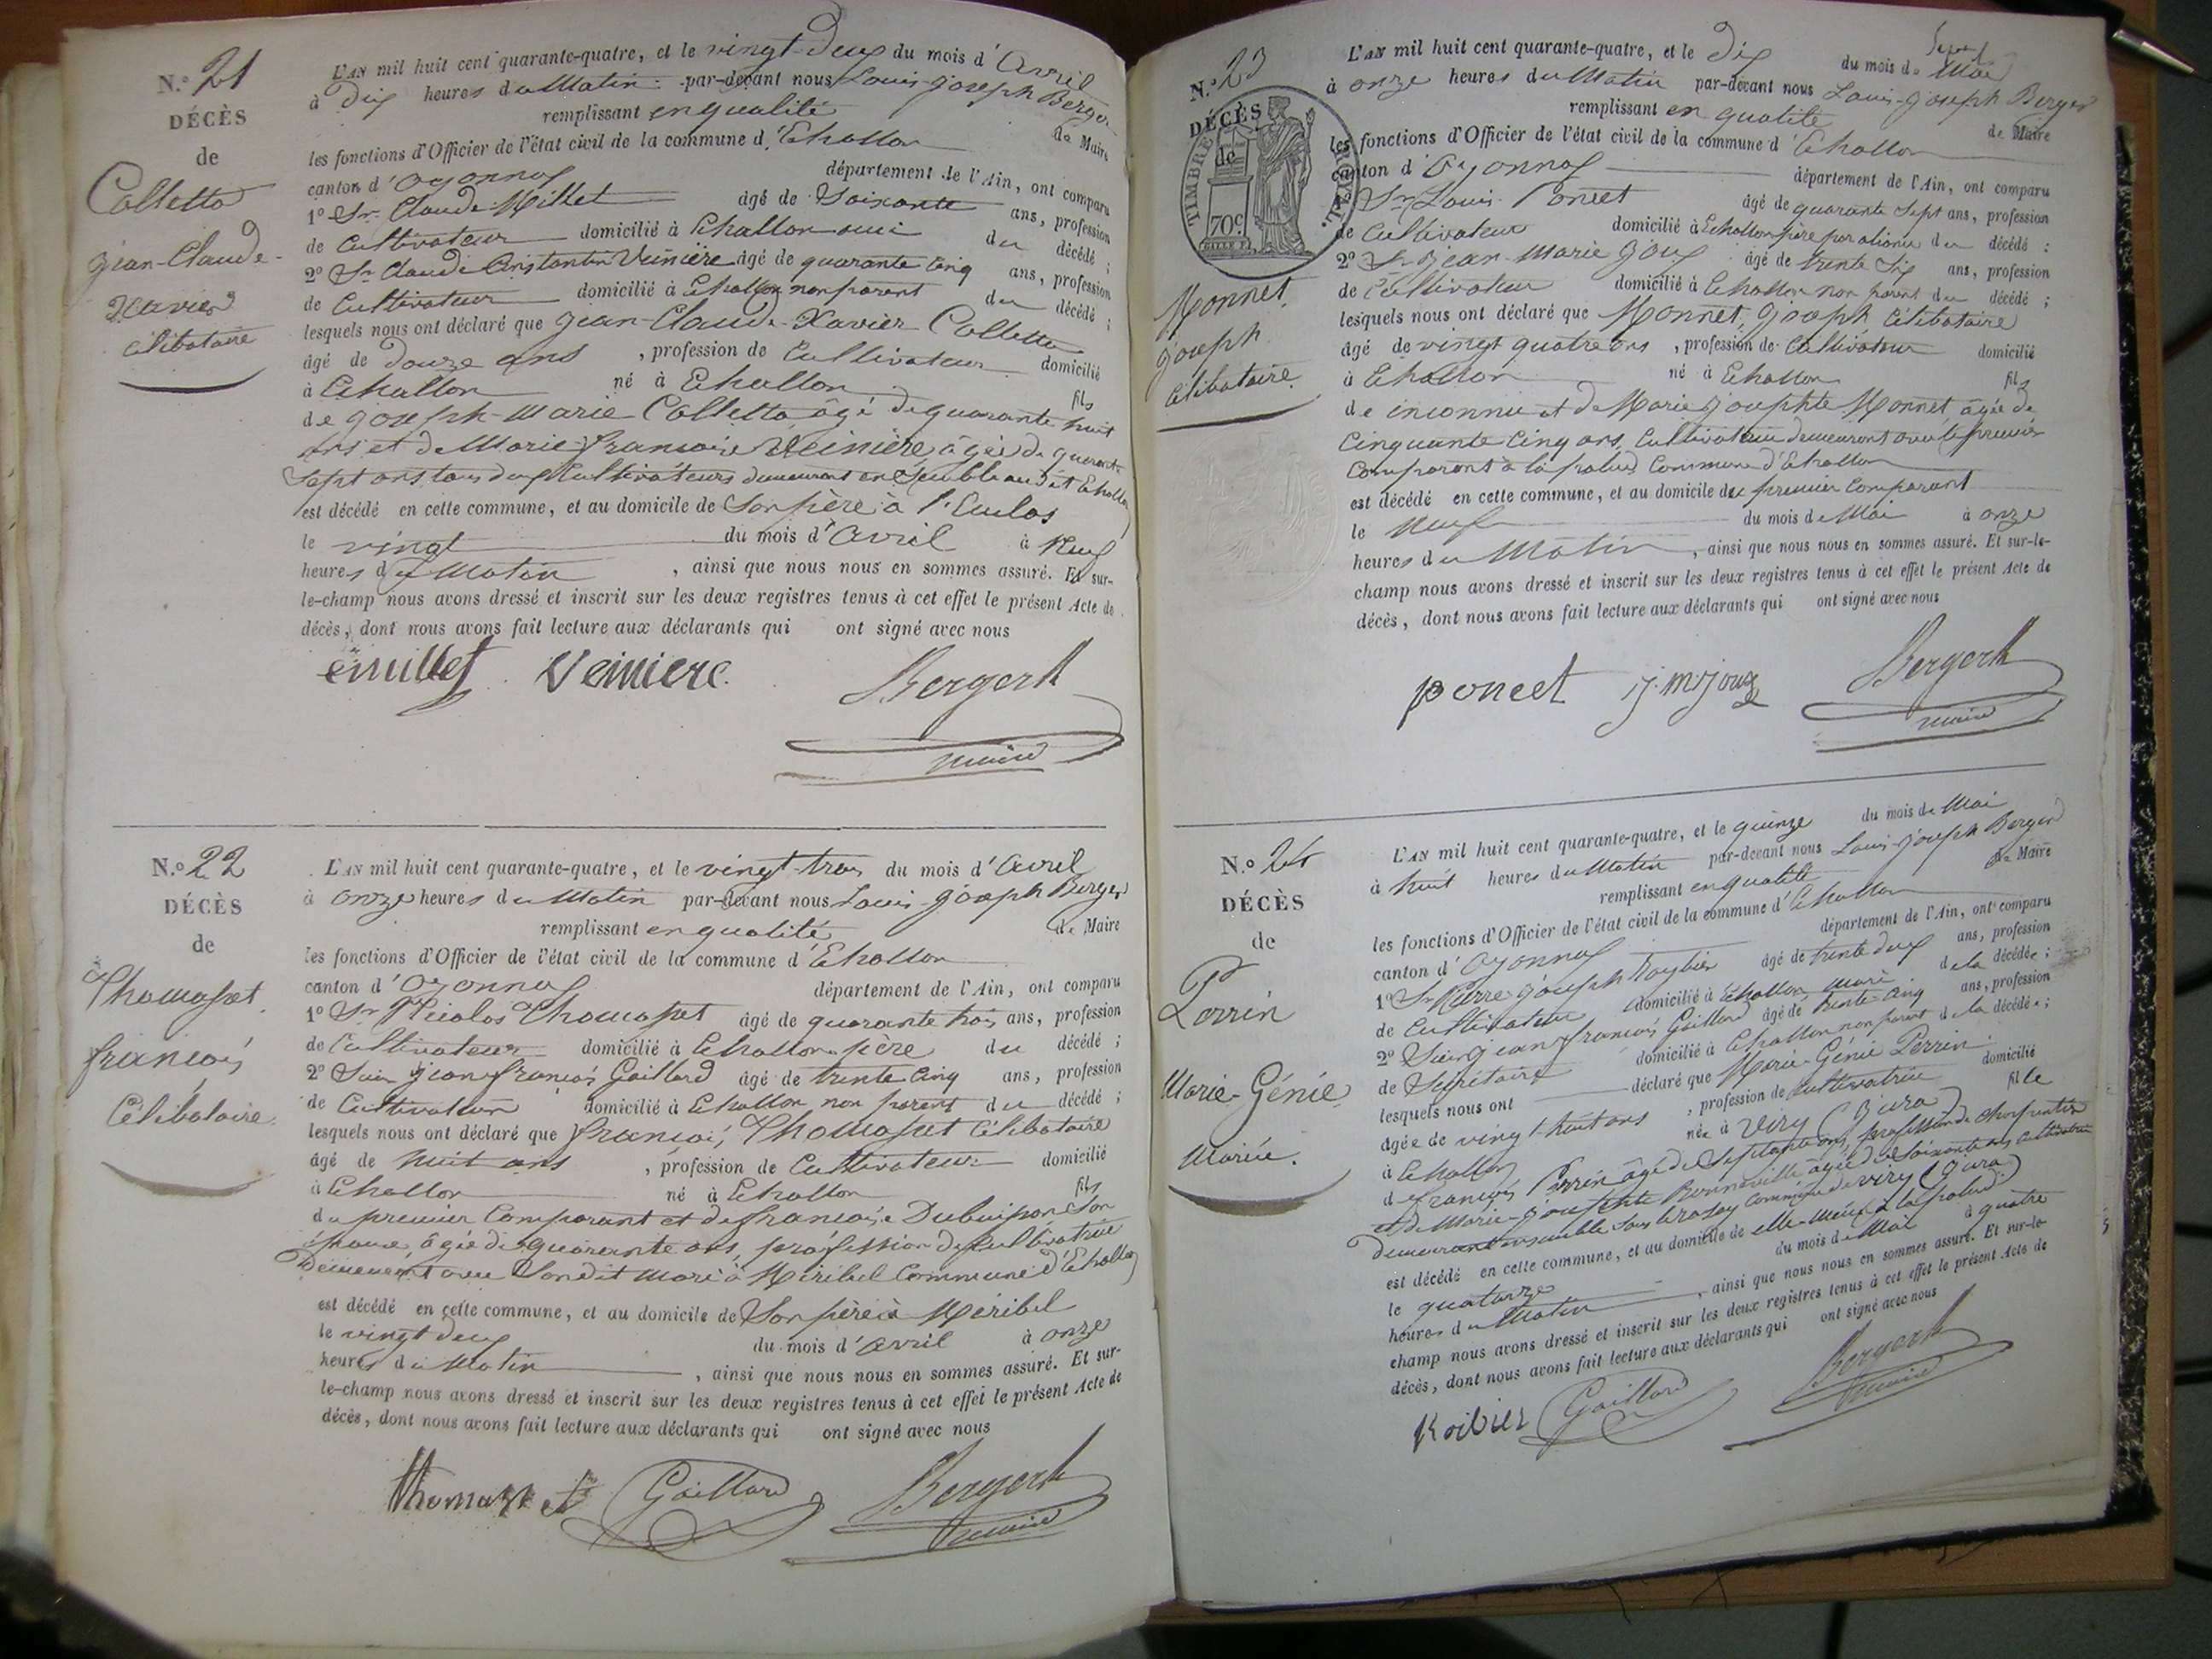 N.o 21
DÉCÈS
de
Colletta
Jean-Claude-
Xavier
célibataire
L'AN mil huit cent quarante-quatre, et le vingt-deux du mois d'Avril
à dix heures du Matin par-devant nous Louis-Joseph Berger
remplissant en qualité de Maire
les fonctions d'Officier de l'état civil de la commune d'Echallon
canton d'Oyonnax département de l'Ain, ont comparu
1o Sr Claude Millet âgé de Soixante ans, profession
de Cultivateur domicilié à Echallon ami du décédé ;
2o Sr Claude Constantin Veinière âgé de quarante cinq ans, profession
de Cultivateur domicilié à Echallon non parent du décédé ;
lesquels nous ont déclaré que Jean-Claude-Xavier Colletta
âgé de douze ans , profession de Cultivateur domicilié
à Echallon né à Echallon fils
de Joseph-Marie Colletta âgé de quarante huit
ans et de Marie françoise Veinière âgée de quarante
sept ans tous deux Cultivateurs demeurant ensemble audit Echallon
est décédé en cette commune, et au domicile de Son père à l'Enclos
le vingt du mois d'Avril à Neuf
heures du Matin , ainsi que nous nous en sommes assuré. Et sur-
le-champ nous avons dressé et inscrit sur les deux registres tenus à cet effet le présent Acte de
décès, dont nous avons fait lecture aux déclarants qui ont signé avec nous
Veiniere Berger
maire
N.o 22
DÉCÈS
de
Thomasset
françois
Célibataire
L'AN mil huit cent quarante-quatre, et le vingt-trois du mois d'Avril
à onze heures du Matin par-devant nous Louis-Joseph Berger
remplissant en qualité de Maire
les fonctions d'Officier de l'état civil de la commune d'Echallon
canton d'Oyonnax département de l'Ain, ont comparu
1o Sr Nicolas Thomasset âgé de quarante trois ans, profession
de Cultivateur domicilié à Echallon père du décédé ;
2o Sieur Jean françois Gaillard âgé de trente cinq ans, profession
de Cultivateur domicilié à Echallon non parent du décédé ;
lesquels nous ont déclaré que françois Thomasset Célibataire
âgé de huit ans , profession de Cultivateur domicilié
à Echallon né à Echallon fils
du premier Comparant et de françoise Dubuisson Son
épouse âgée de quarante ans, profession de Cultivatrice
demeurant avec Son dit Mari à Méribel Commune d'Echallon
est décédé en cette commune, et au domicile de Son père à Méribel
le vingt deux du mois d'Avril à onze
heures du Matin , ainsi que nous nous en sommes assuré. Et sur-
le-champ nous avons dressé et inscrit sur les deux registres tenus à cet effet le présent Acte de
décès, dont nous avons fait lecture aux déclarants qui ont signé avec nous
Gaillard Berger
maire
N.o 23
DÉCÈS
de
TIMBRE ROYAL
70c.
Monnet
Joseph
célibataire
L'AN mil huit cent quarante-quatre, et le dix du mois de Mai
à onze heures du Matin par-devant nous Louis-Joseph Berger
remplissant en qualité de Maire
les fonctions d'Officier de l'état civil de la commune d'Echallon
canton d'Oyonnax département de l'Ain, ont comparu
Sr Louis Poncet âgé de quarante Sept ans, profession
de Cultivateur domicilié à Echallon du décédé ;
2o Sr Jean-Marie Joux âgé de trente Six ans, profession
de Cultivateur domicilié à Echallon non parent du décédé ;
lesquels nous ont déclaré que Monnet, Joseph Célibataire
âgé de vingt quatre ans , profession de Cultivateur domicilié
à Echallon né à Echallon fils
de inconnu et de Marie Josephte Monnet âgée de
Cinquante Cinq ans, Cultivatrice demeurant avec le premier
Comparant à la palud Commune d'Echallon
est décédé en cette commune, et au domicile du premier Comparant
le Neuf du mois de Mai à onze
heures du Matin , ainsi que nous nous en sommes assuré. Et sur-le-
champ nous avons dressé et inscrit sur les deux registres tenus à cet effet le présent Acte de
décès, dont nous avons fait lecture aux déclarants qui ont signé avec nous
poncet j. m. joux Berger
maire
N.o 24
DÉCÈS
de
Perrin
Marie-Génie
Mariée.
L'AN mil huit cent quarante-quatre, et le quinze du mois de Mai
à huit heures du Matin par-devant nous Louis-Joseph Berger
remplissant en qualité de Maire
les fonctions d'Officier de l'état civil de la commune d'Echallon
canton d'Oyonnax département de l'Ain, ont comparu
1o Sr Pierre-Joseph âgé de trente deux ans, profession
de Cultivateur domicilié à Echallon mari de la décédée ;
2o Sieur Jean françois Gaillard âgé de trente-cinq ans, profession
de Secrétaire domicilié à Echallon non parent de la décédée ;
lesquels nous ont déclaré que Marie-Génie Perrin
âgée de vingt-huit ans , profession de Cultivatrice domicilié
à Echallon née à Viry (Jura) fille
de françois Perrin âgé de Septante ans, profession de charpentier
et de Marie-Josephte Bonneville âgée de Soixante ans Cultivatrice
demeurant ensemble Commune de Viry (Jura)
est décédé en cette commune, et au domicile de elle-même à la palud
le quatorze du mois de Mai à quatre
heures du Matin , ainsi que nous nous en sommes assuré. Et sur-le-
champ nous avons dressé et inscrit sur les deux registres tenus à cet effet le présent Acte de
décès, dont nous avons fait lecture aux déclarants qui ont signé avec nous
Roibier Gaillard Berger
maire